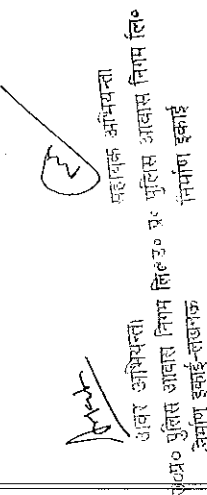 अवर अभियन्ता
उ०प्र० पुलिस आवास निगम लि०
निर्माण इकाई-लखनऊ
सहायक अभियन्ता
उ० प्र० पुलिस आवास निगम लि०
निर्माण इकाई